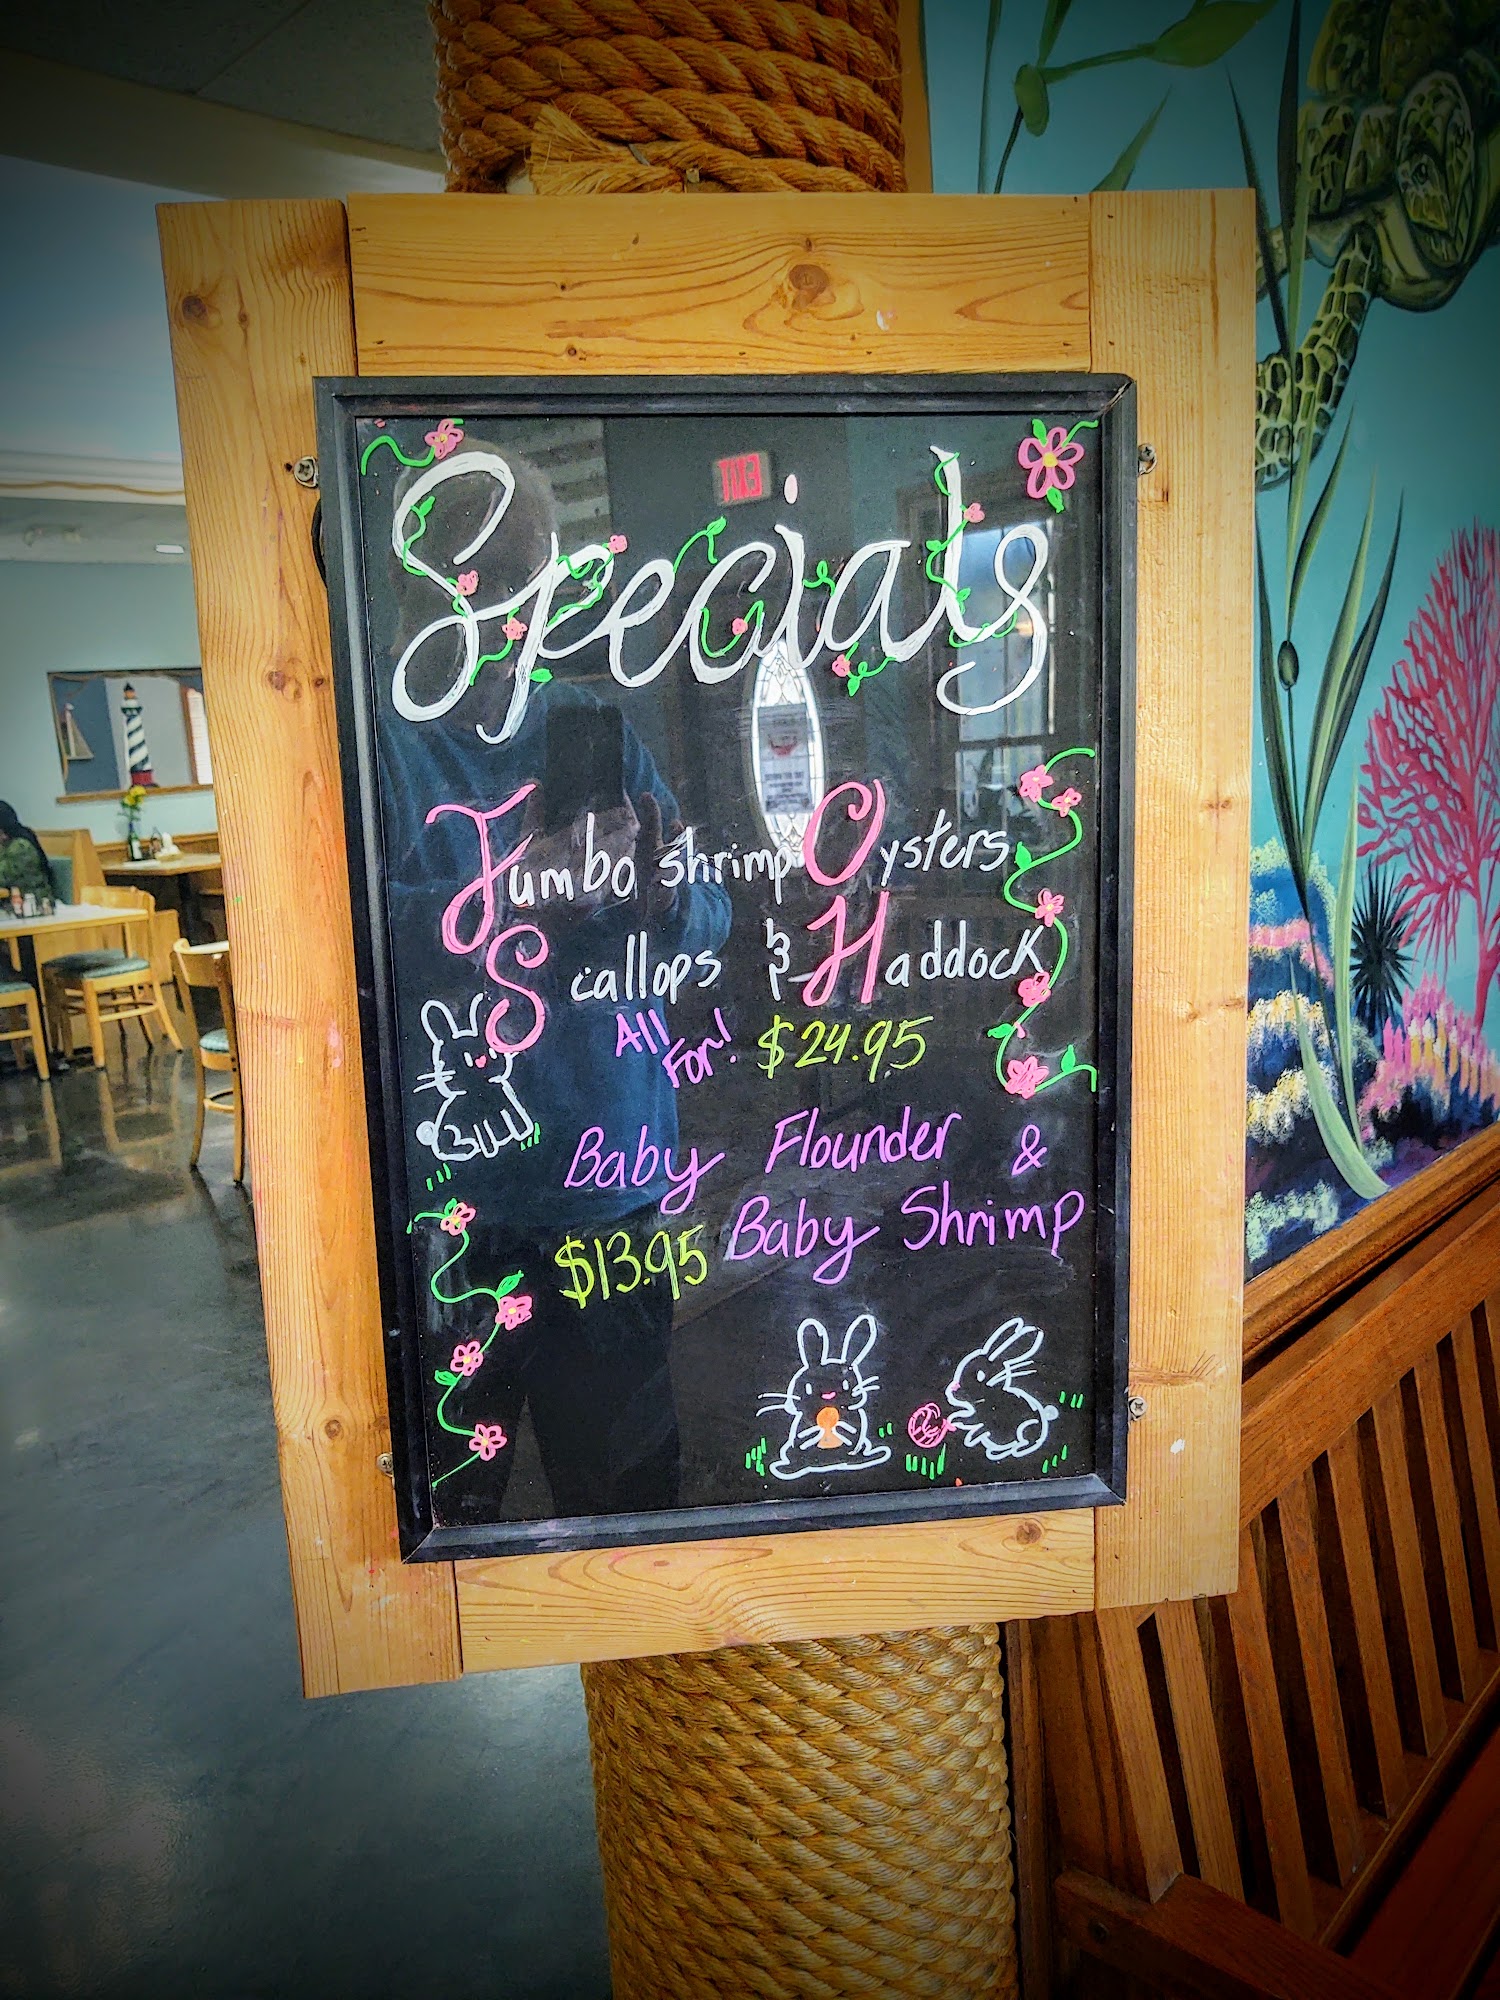 Specials
Jumbo shrimp Oysters
Scallops & Haddock
All For! $24.95
Baby Flounder &
$13.95 Baby Shrimp
EXIT